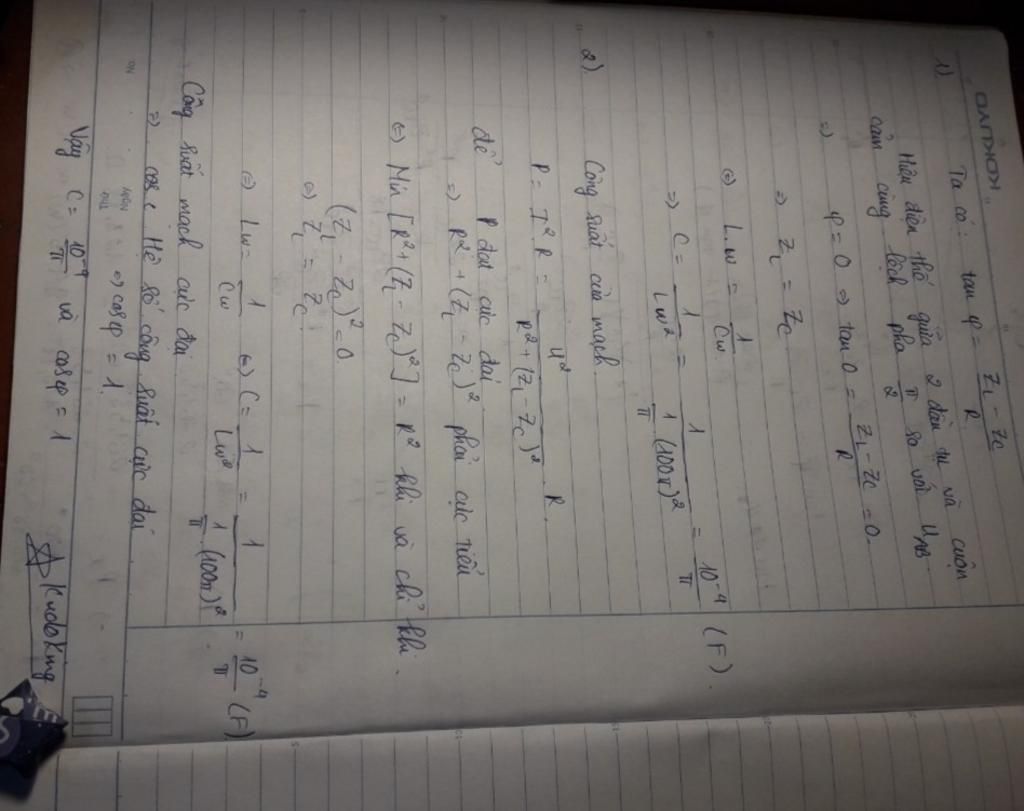 KOKUYO
1) Ta có: tan φ = (Z_L - Z_C)/R
Hiệu điện thế giữa 2 đầu tụ và cuộn
cảm cùng lệch pha π/2 so với U_AB
⇒ φ = 0 ⇒ tan 0 = (Z_L - Z_C)/R = 0.
⇒ Z_L = Z_C
⇔ L.ω = 1/(Cω)
⇒ C = 1/(Lω²) = 1/(1/π (100π)²) = 10⁻⁴/π (F).
2). Công suất của mạch
P = I²R = U²/(R² + (Z_L - Z_C)²) R.
để P đạt cực đại
⇒ R² + (Z_L - Z_C)² phải cực tiểu
⇔ Min [R² + (Z_L - Z_C)²] = R² khi và chỉ khi.
(Z_L - Z_C)² = 0.
⇔ Z_L = Z_C.
⇔ Lω = 1/(Cω) ⇔ C = 1/(Lω²) = 1/(1/π (100π)²) = 10⁻⁴/π (F)
Công suất mạch cực đại
⇒ Hệ số công suất cực đại
⇒ cos φ = 1.
Vậy C = 10⁻⁴/π và cos φ = 1
KudoKing